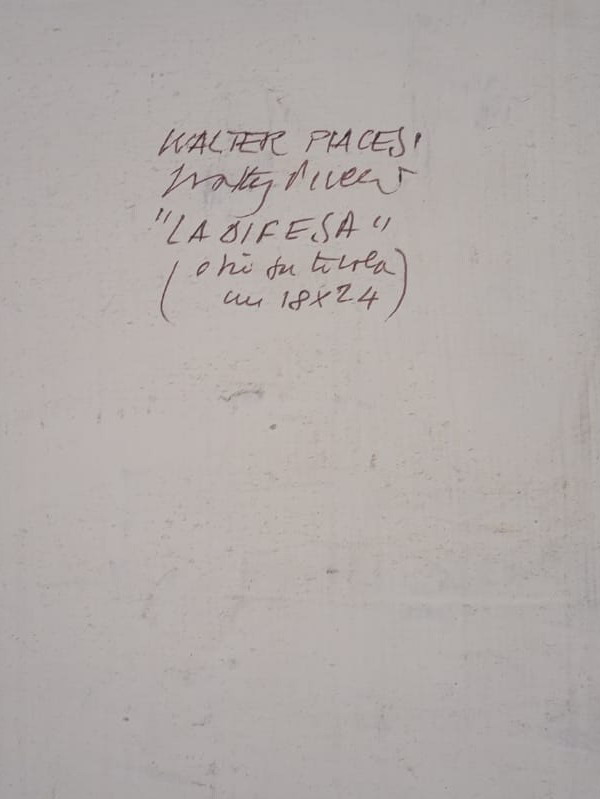 WALTER PIACESI
Walter Piacesi
"LA DIFESA"
(olio su tavola
cm 18x24)